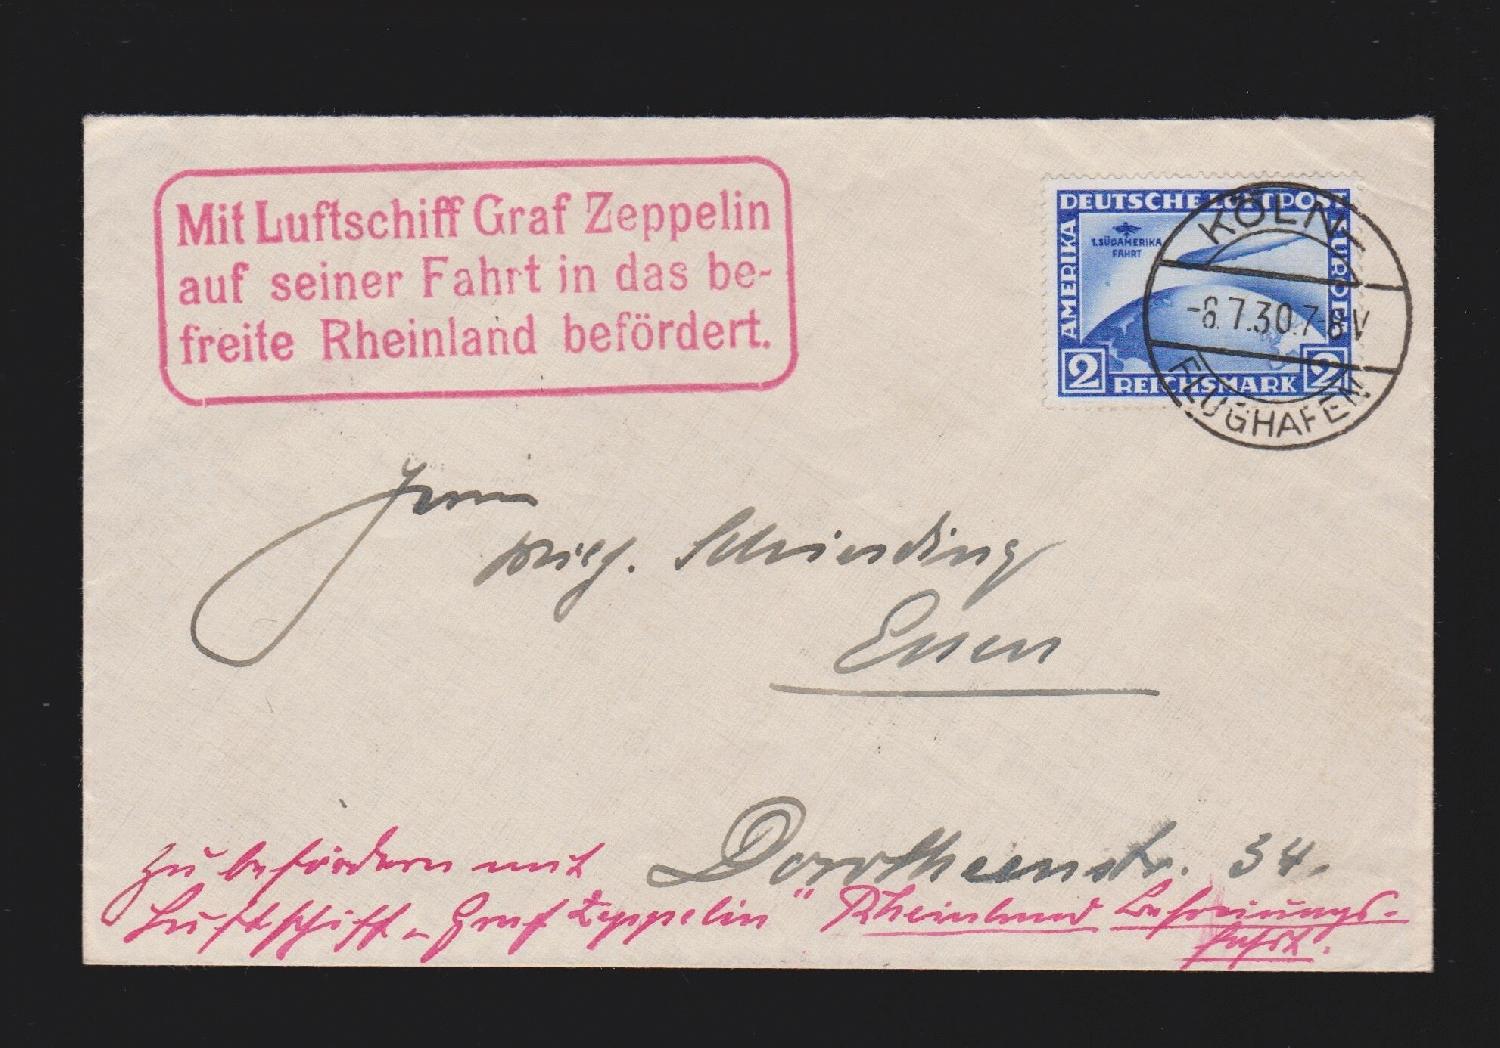 Mit Luftschiff Graf Zeppelin
auf seiner Fahrt in das be-
freite Rheinland befördert.
DEUTSCHE LUFTPOST
AMERIKA
EUROPA
1. SÜDAMERIKA
FAHRT
2
REICHSMARK
2
KÖLN
-6.7.30.7-8V
FLUGHAFEN
Herrn
Schierding
Essen
Dorotheenstr. 34.
zu befördern mit
Luftschiff „Graf Zeppelin" Rheinland Befreiungs-
fahrt.